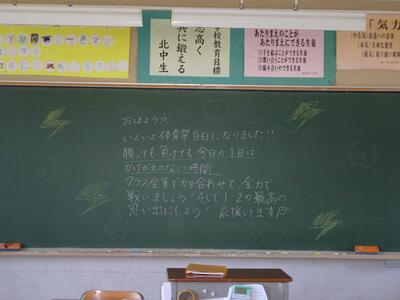 学校教育目標
志高く
共に鍛える
北中生
あたりまえのことが
あたりまえにできる生徒
「気力
おはよう
いよいよ体育祭当日になりました!!
勝っても負けても今日の1日は
かけがえのない時間
クラス全員で力を合わせて、全力で
戦いましょう!そして1-2の最高の
思い出にしよう! 応援してます